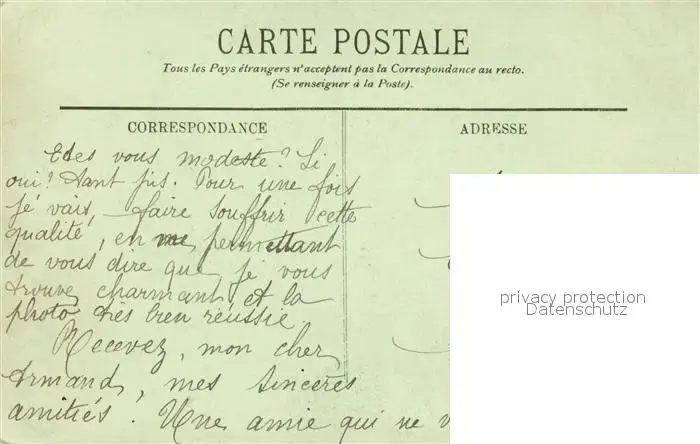 CARTE POSTALE
Tous les Pays étrangers n'acceptent pas la Correspondance au recto.
(Se renseigner à la Poste).
CORRESPONDANCE
ADRESSE
Etes vous modeste? Si
oui? tant pis. Pour une fois
je vais, faire souffrir cette
qualité, en me permettant
de vous dire que je vous
trouve charmant, et la
photo très bien réussie
Recevez, mon cher
Armand, mes sincères
amitiés! Une amie qui ne v
privacy protection
Datenschutz